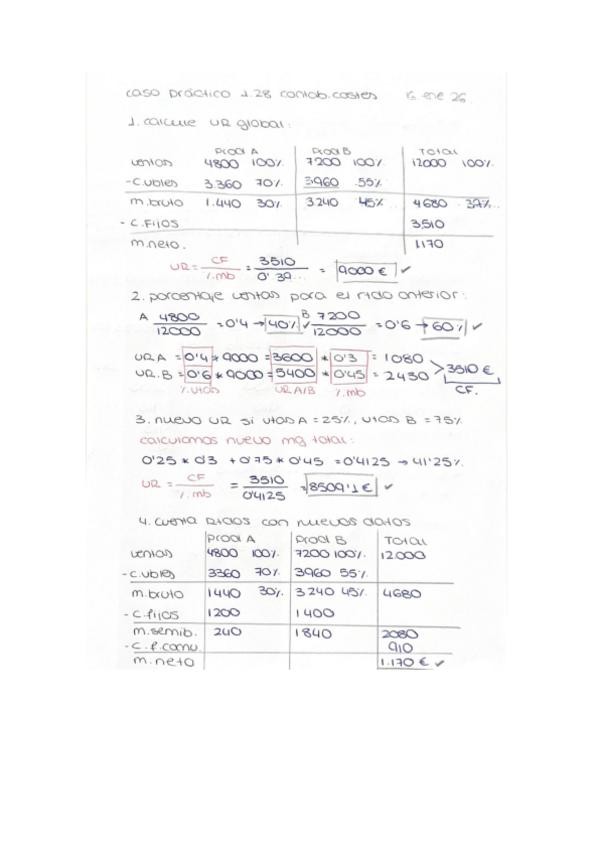 caso práctico 1.28 contab.costes 15 ene 26
1. calcule UR global:
Prod A Prod B Total
ventas 4800 100% 7200 100% 12000 100%
- C.ubles 3.360 70% 3960 55%
m.bruto 1.440 30% 3240 45% 4680 39%
- C.Fijos 3.510
m.neto. 1.170
UR = CF / %.mb = 3510 / 0'39... = 9000 € ✓
2. porcentaje ventas para el rtdo anterior:
A 4800 / 12000 = 0'4 → 40% ✓ B 7200 / 12000 = 0'6 → 60% ✓
UR A = 0'4 * 9000 = 3600 * 0'3 = 1080
UR. B = 0'6 * 9000 = 5400 * 0'45 = 2430 > 3510 €
%.vtas UR A/B %.mb CF.
3. nuevo UR si vtas A = 25%, vtas B = 75%
calculamos nuevo mg total:
0'25 * 0'3 + 0'75 * 0'45 = 0'4125 → 41'25%.
UR = CF / %.mb = 3510 / 0'4125 = 8509'1 € ✓
4. cuenta Rtdos con nuevos datos
Prod A Prod B Total
ventas 4800 100% 7200 100% 12.000
- C.ubles 3360 70% 3960 55%
m.bruto 1440 30% 3240 45% 4680
- C.fijos 1200 1400
m.semib. 240 1840 2080
- C.f.comu. 910
m.neto 1.170 € ✓